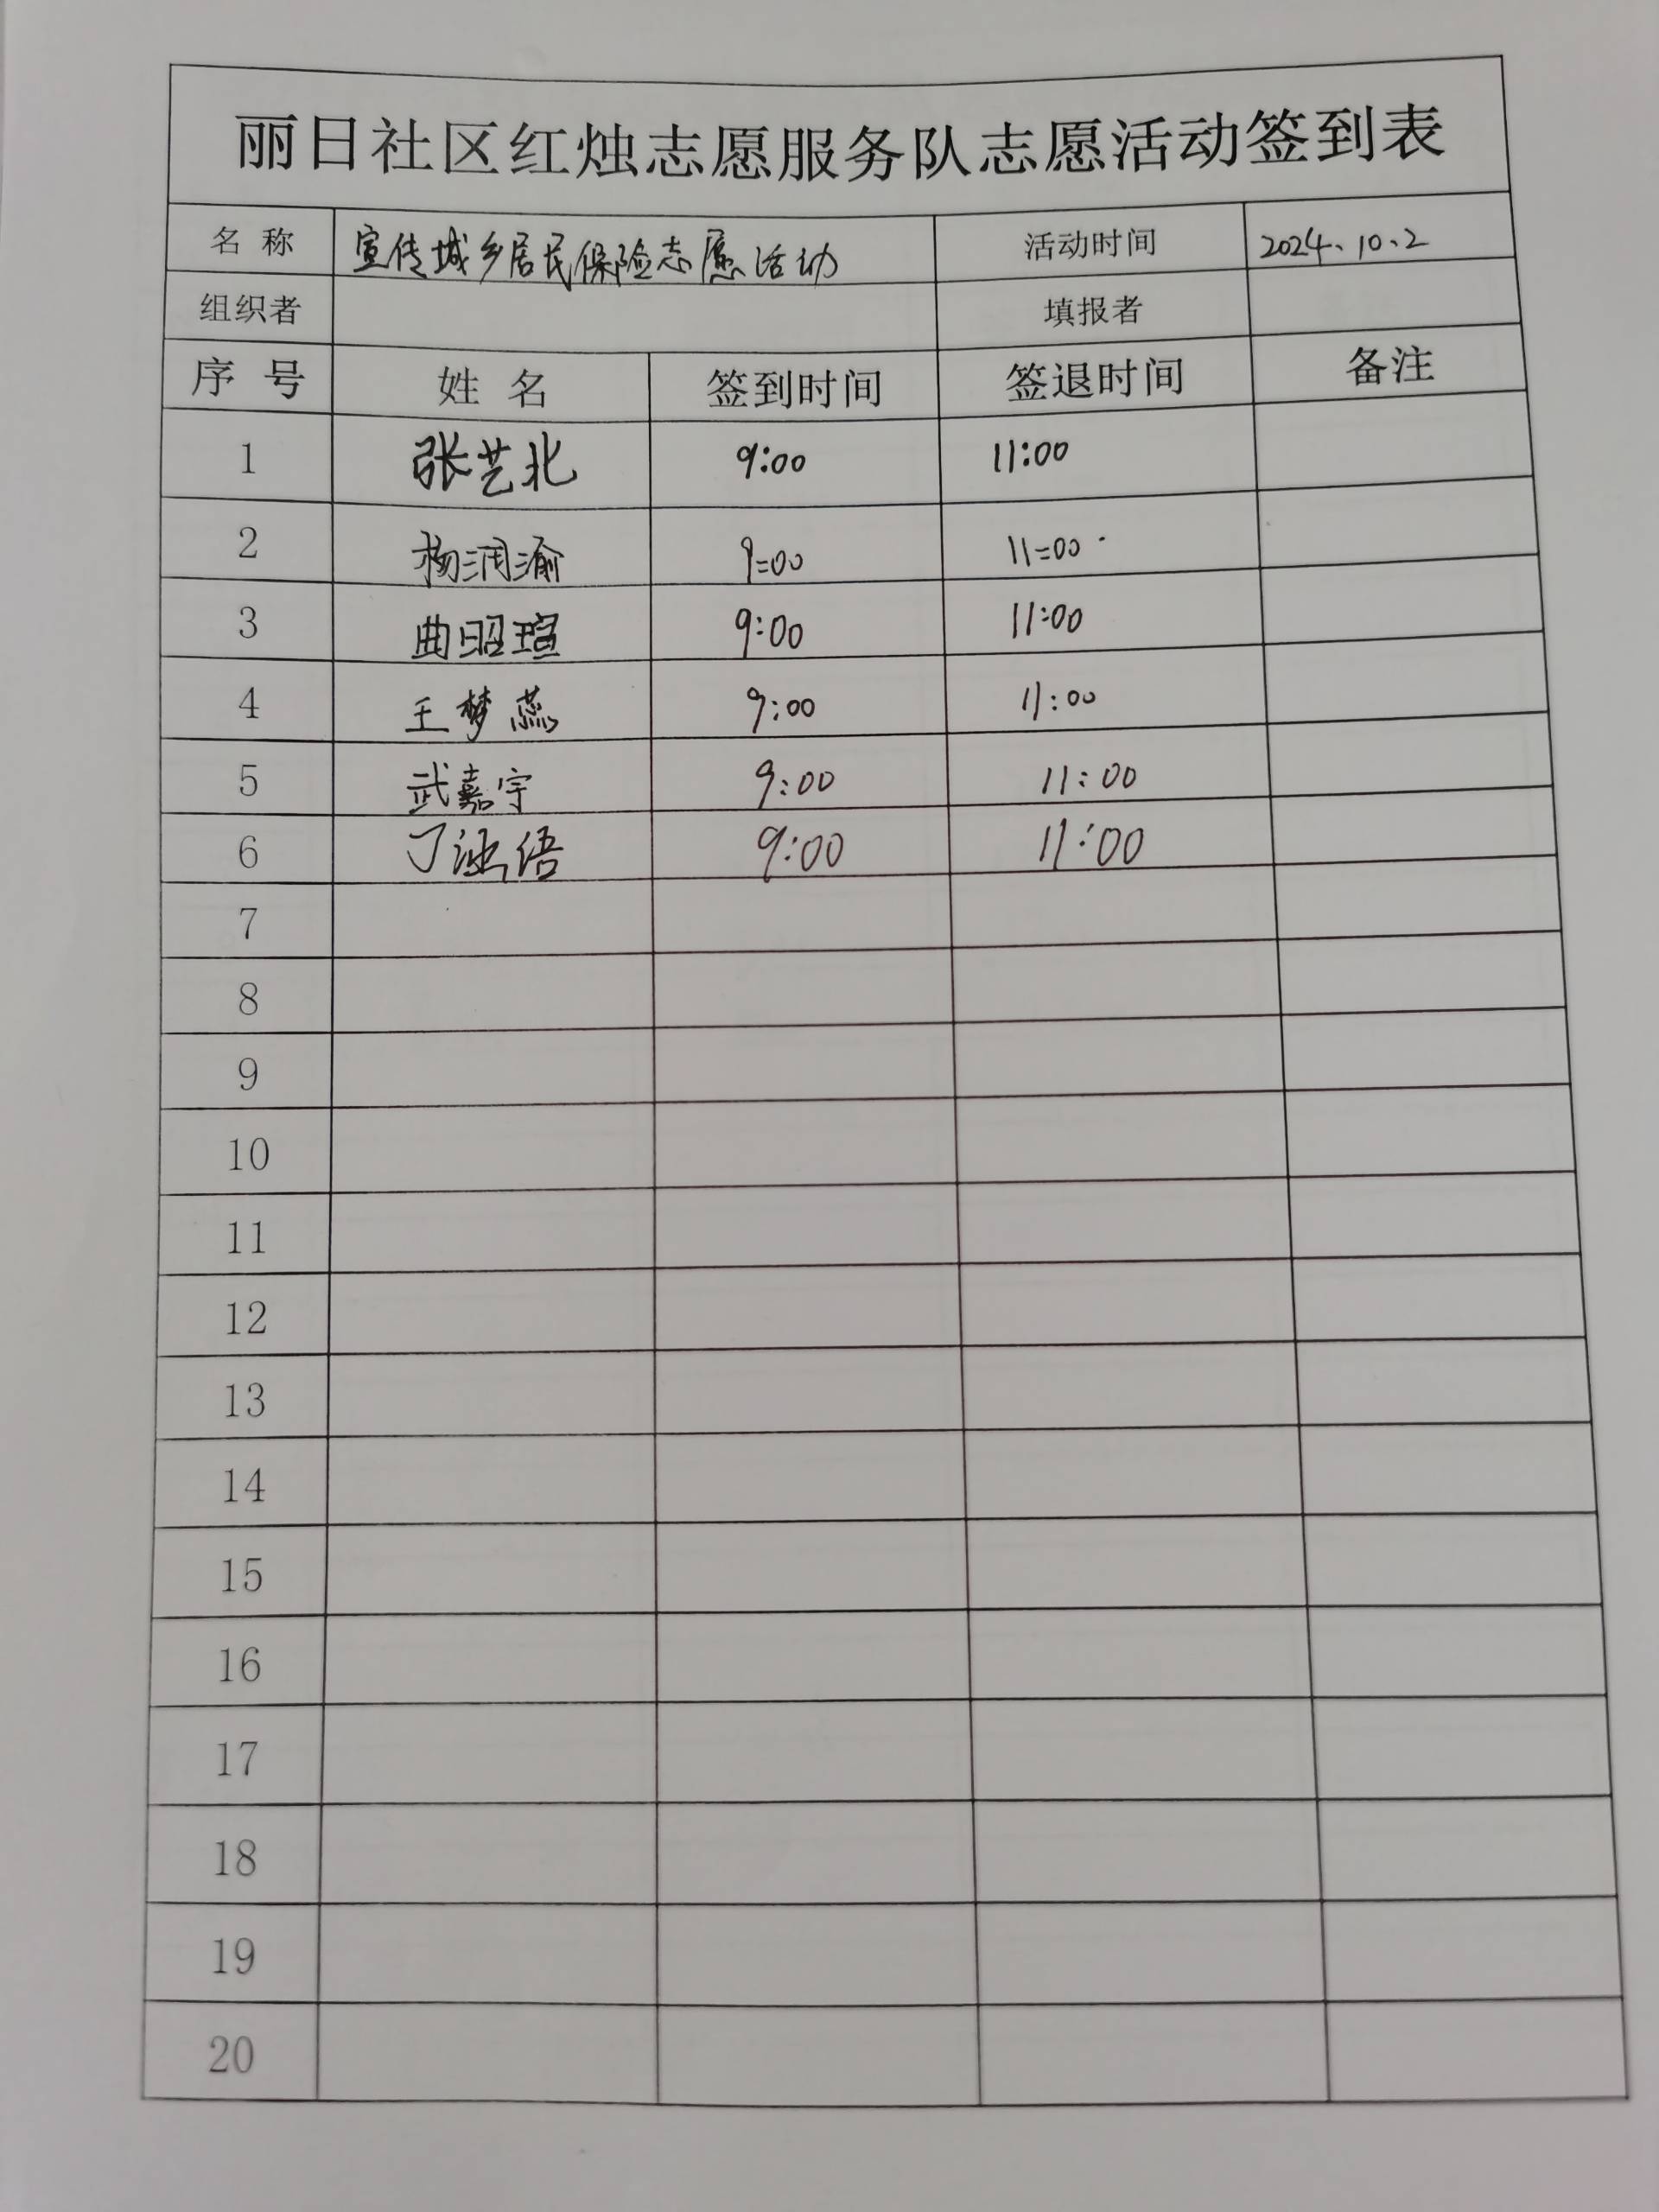 丽日社区红烛志愿服务队志愿活动签到表
名 称 宣传城乡居民保险志愿活动 活动时间 2024、10、2
组织者 填报者
序 号 姓 名 签到时间 签退时间 备注
1 张艺北 9:00 11:00
2 杨润渝 9=00 11=00
3 曲昭瑄 9:00 11:00
4 王梦燕 9:00 11:00
5 武嘉宇 9:00 11:00
6 9:00 11:00
7
8
9
10
11
12
13
14
15
16
17
18
19
20